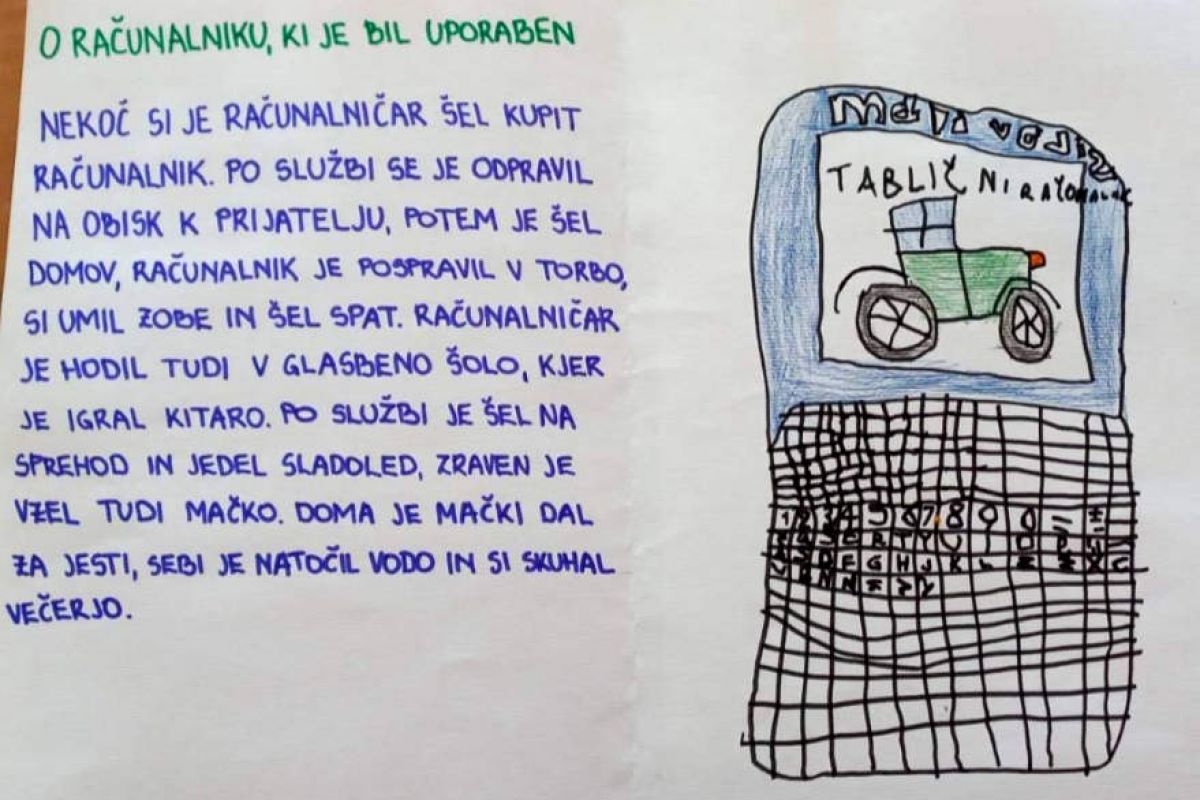 O RAČUNALNIKU, KI JE BIL UPORABEN
NEKOČ SI JE RAČUNALNIČAR ŠEL KUPIT
RAČUNALNIK. PO SLUŽBI SE JE ODPRAVIL
NA OBISK K PRIJATELJU, POTEM JE ŠEL
DOMOV, RAČUNALNIK JE POSPRAVIL V TORBO,
SI UMIL ZOBE IN ŠEL SPAT. RAČUNALNIČAR
JE HODIL TUDI V GLASBENO ŠOLO, KJER
JE IGRAL KITARO. PO SLUŽBI JE ŠEL NA
SPREHOD IN JEDEL SLADOLED, ZRAVEN JE
VZEL TUDI MAČKO. DOMA JE MAČKI DAL
ZA JESTI, SEBI JE NATOČIL VODO IN SI SKUHAL
VEČERJO.
TABLIČNI RAČUNALNIK
1 2 3 4 5 6 7 8 9 0
F G H J K